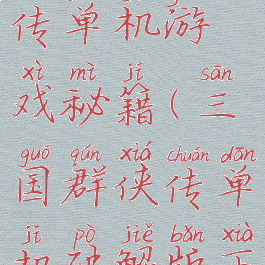 传单机游
xì mì jí sān
戏秘籍(三
guó qún xiá chuán dān
国群侠传单
jī pò jiě bǎn xià
机破解版下